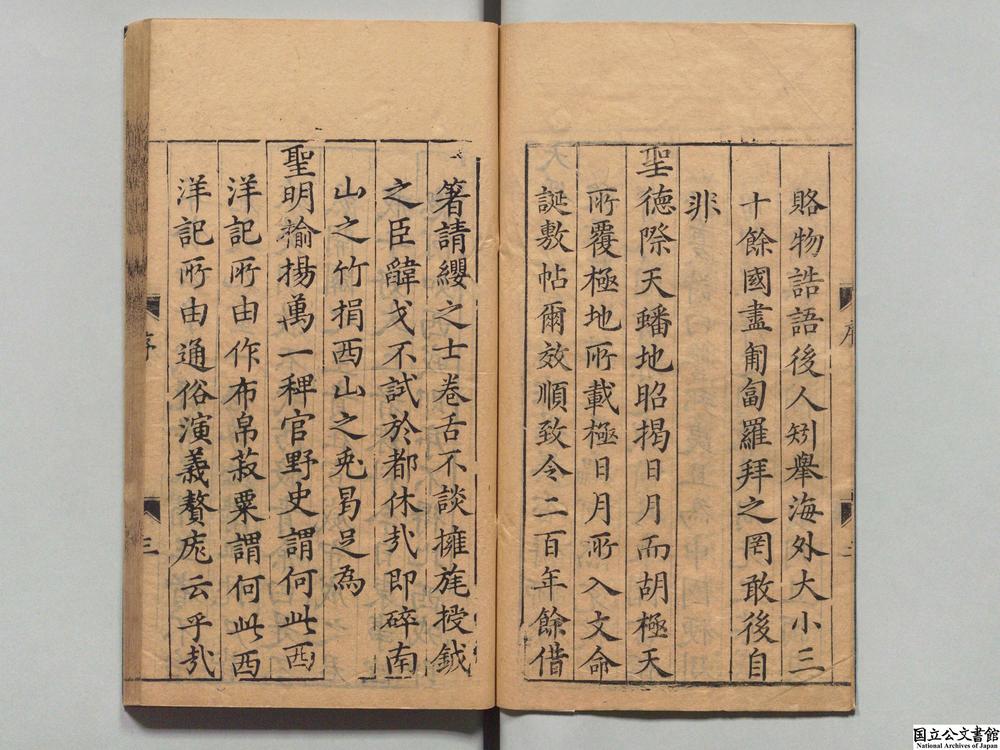 賂物誥語後人矧舉海外大小三
十餘國盡匍匐羅拜之罔敢後自
非
聖德際天蟠地昭揭日月而胡極天
所覆極地所載極日月所入文命
誕敷帖爾效順致令二百年餘借
序
箸請纓之士卷舌不談擁旄授鉞
之臣韡戈不試於都休哉即碎南
山之竹捐西山之兎曷足為
聖明揄揚萬一稗官野史謂何此西
洋記所由作布帛菽粟謂何此西
洋記所由通俗演義贅庬云乎哉
序
三
国立公文書館
National Archives of Japan